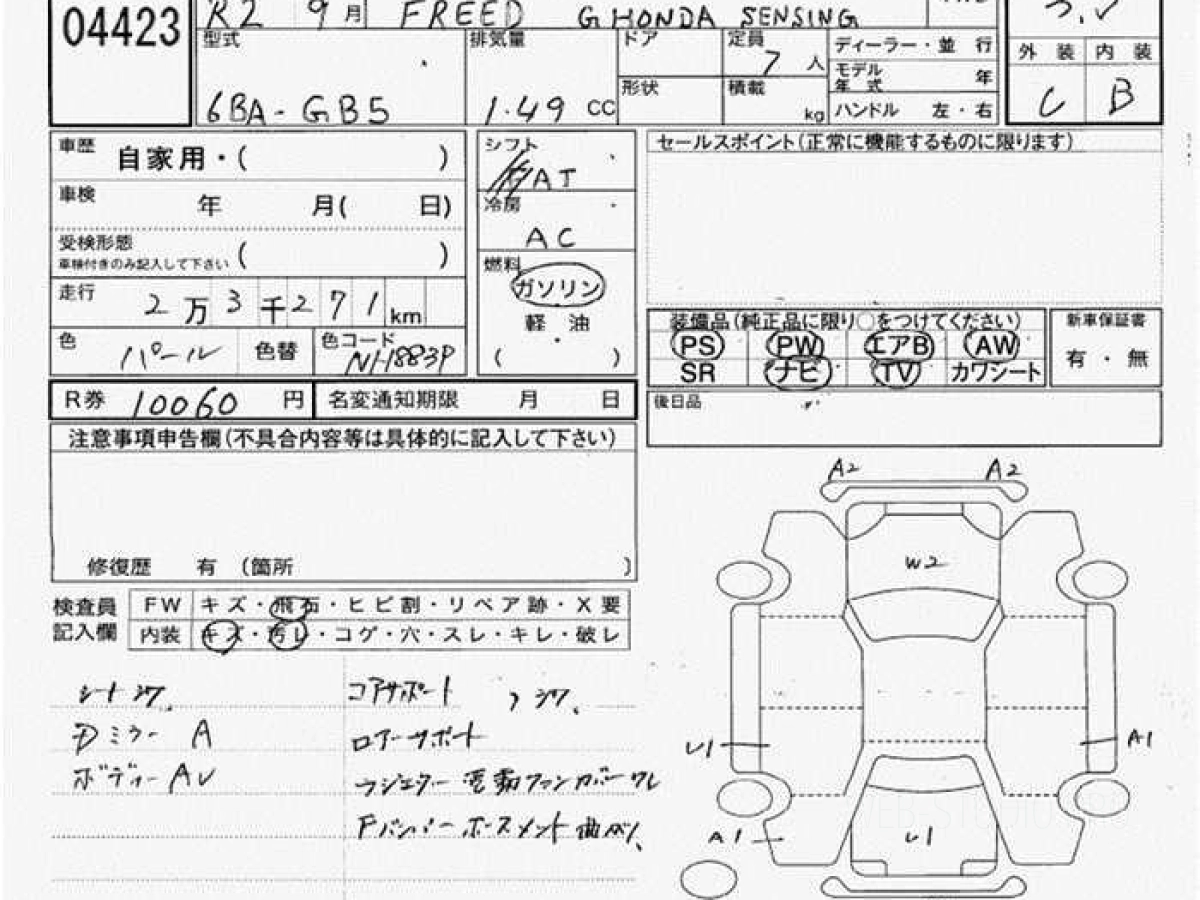 04423
R2 9月 FREED G HONDA SENSING
型式 排気量 ドア 定員 7 人 ディーラー・並 行
6BA-GB5 1.49 CC 形状 積載 kg モデル年式 年
ハンドル 左・右
外 装 内 装
C B
車歴 自家用・( )
車検 年 月( 日)
受検形態 ( )
車検付きのみ記入して下さい
走行 2万3千271km
色 パール 色替 色コード NH883P
シフト AT
冷房 AC
燃料 ガソリン
軽 油
( )
セールスポイント(正常に機能するものに限ります)
装備品(純正品に限り○をつけてください)
PS PW エアB AW
SR ナビ TV カワシート
新車保証書
有・無
後日品
R券 10060 円 名変通知期限 月 日
注意事項申告欄(不具合内容等は具体的に記入して下さい)
修復歴 有 (箇所 )
検査員記入欄
FW キズ・飛石・ヒビ割・リペア跡・X要
内装 キズ・汚レ・コゲ・穴・スレ・キレ・破レ
シートシワ、
ミラー A
ボディー AU
コアサポート シワ、
ロアーサポート
ラジエター 電動ファンカバーワレ
Fバンパーホースメント曲がり、
A2 A2
W2
U1 A1
A1 U1